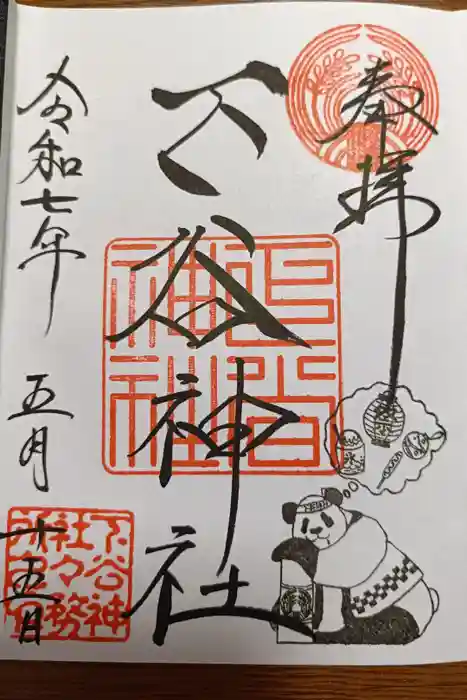 奉拝
下谷神社
下谷神社
令和七年
五月
十五日
下谷神
社々務
所之印